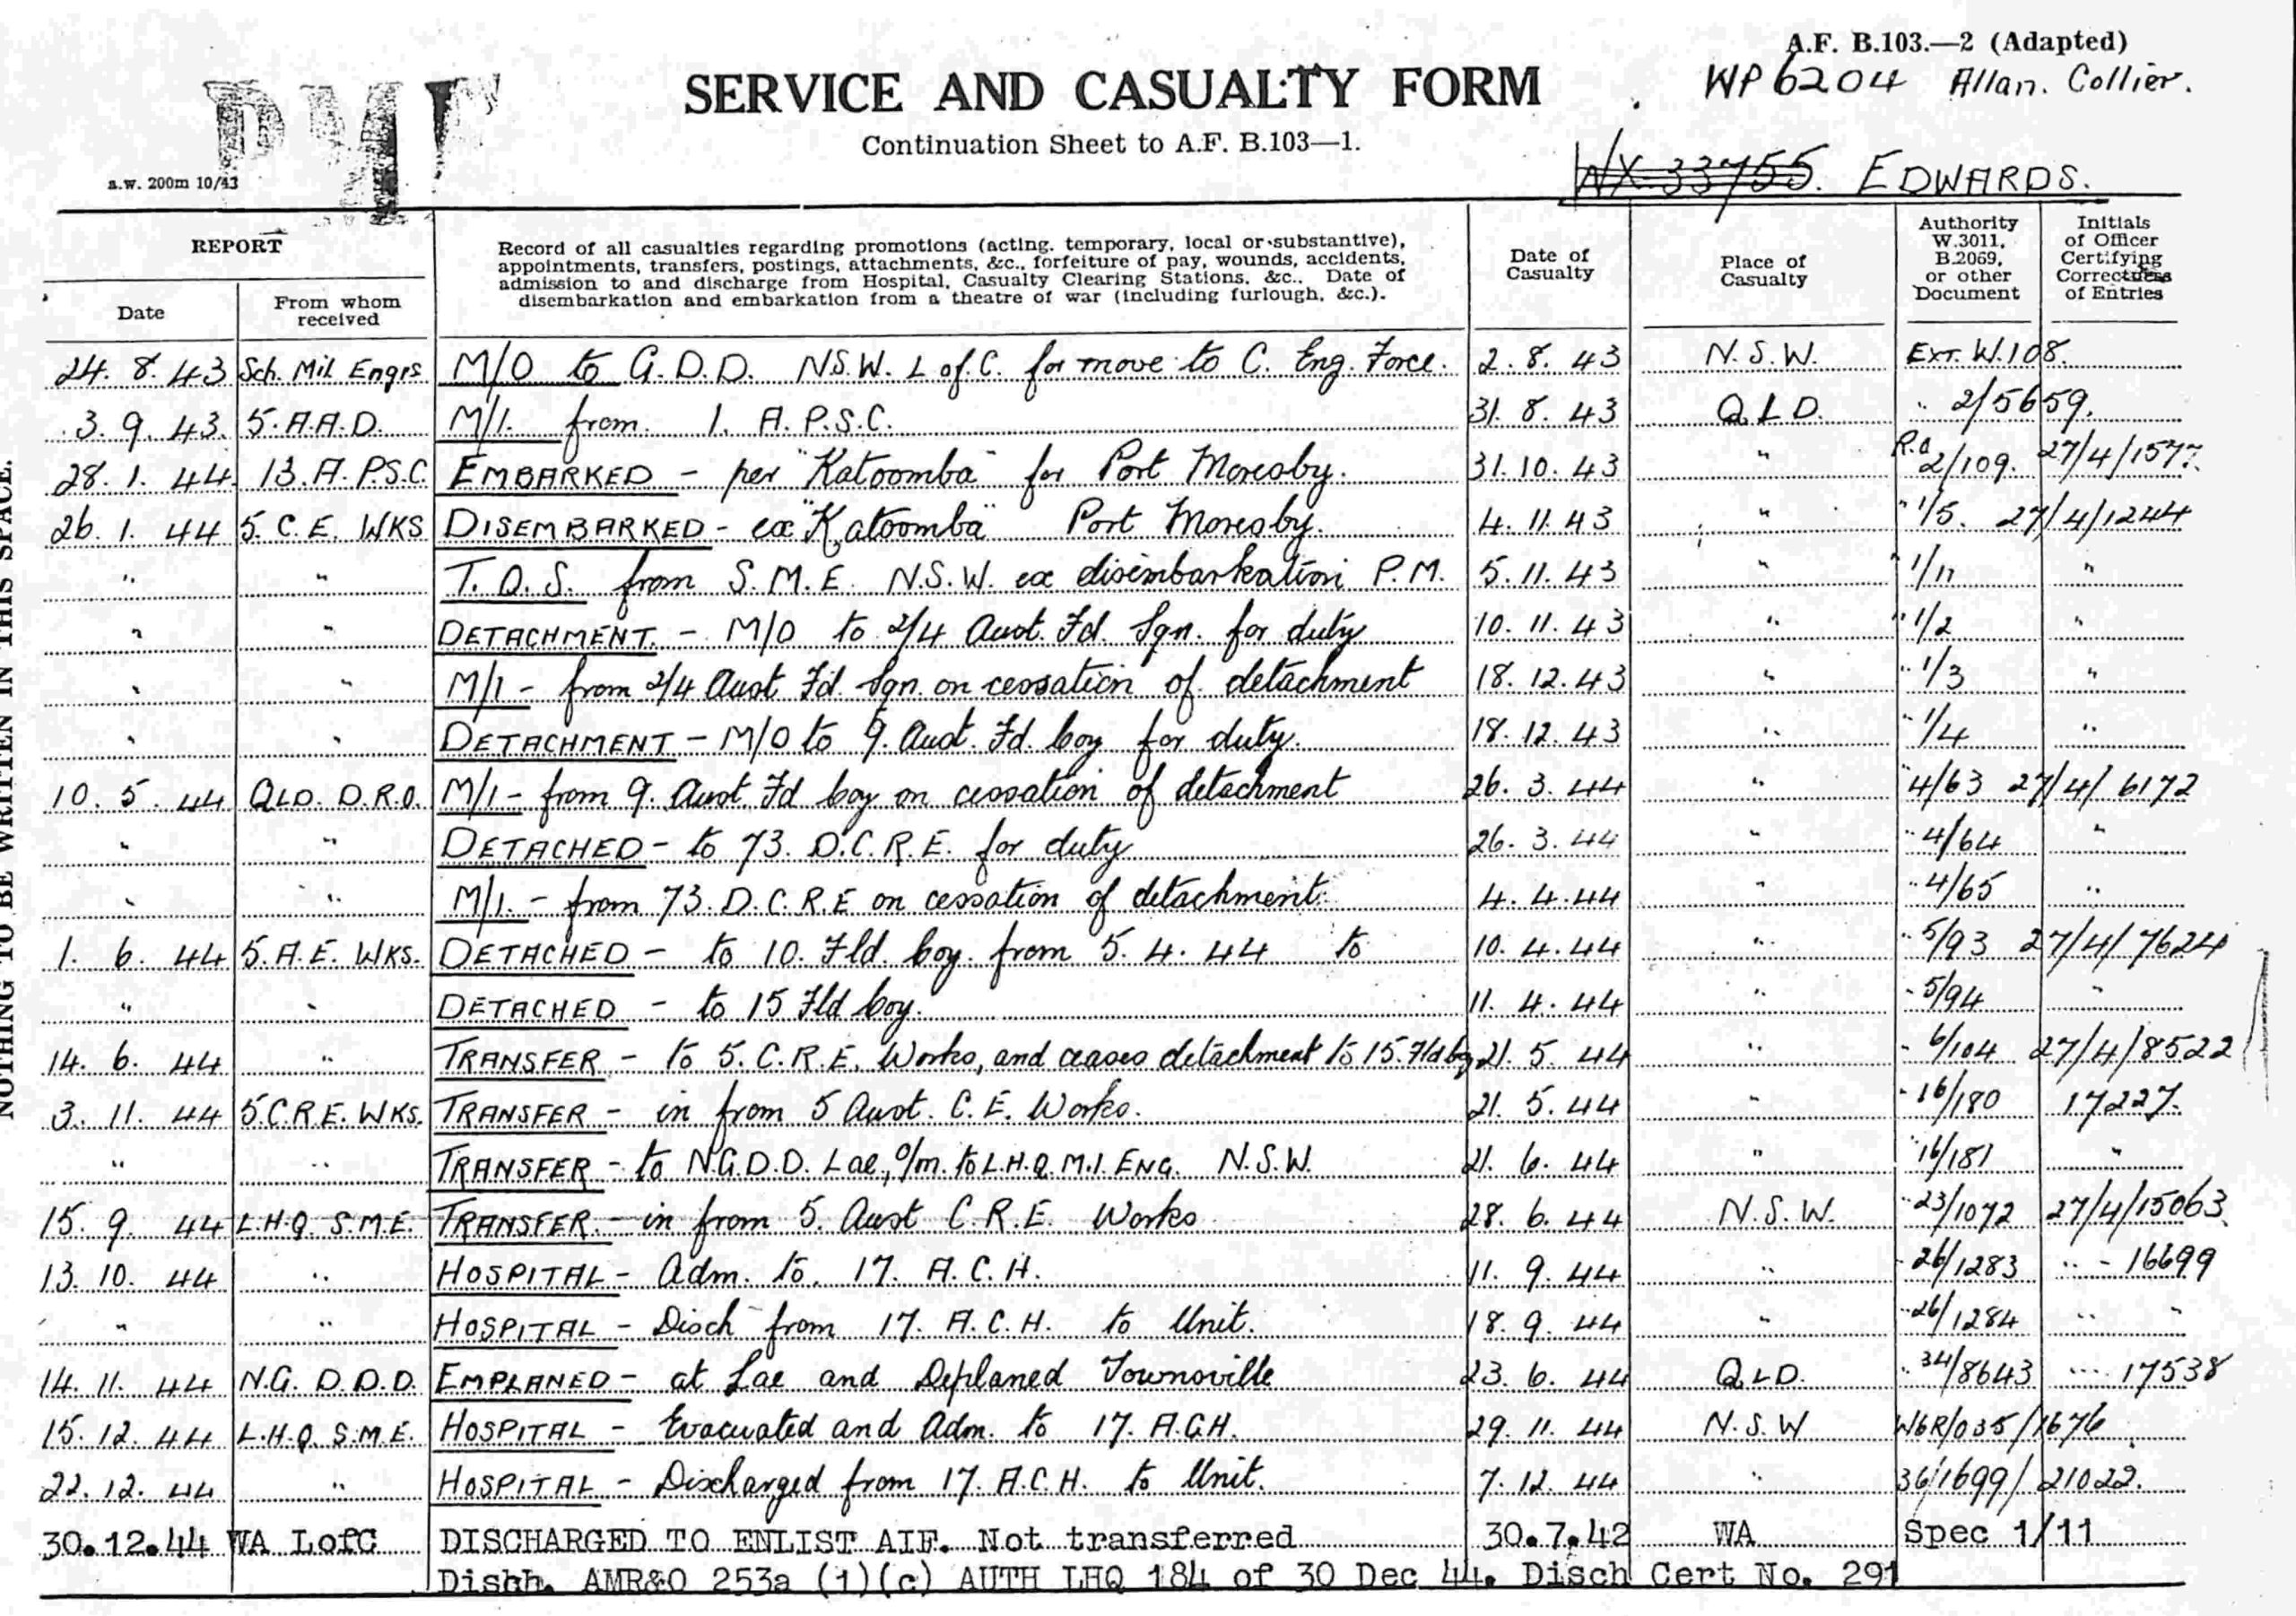 A.F. B.103.—2 (Adapted)
SERVICE AND CASUALTY FORM
WP 6204 Allan. Collier.
Continuation Sheet to A.F. B.103—1.
WX 33755. EDWARDS.
a.w. 200m 10/43
NOTHING TO BE WRITTEN IN THIS SPACE.
REPORT
Date
From whom received
Record of all casualties regarding promotions (acting, temporary, local or substantive),
appointments, transfers, postings, attachments, &c., forfeiture of pay, wounds, accidents,
admission to and discharge from Hospital, Casualty Clearing Stations, &c., Date of
disembarkation and embarkation from a theatre of war (including furlough, &c.).
Date of Casualty
Place of Casualty
Authority W.3011, B.2069, or other Document
Initials of Officer Certifying Correctness of Entries
24. 8. 43 Sch. Mil Engrs M/O to G.D.D. N.S.W. L of C. for move to C. Eng. Force. 2. 8. 43 N.S.W. EXT. W.108.
3. 9. 43. 5. A.A.D. M/I. from 1. A.P.S.C. 31. 8. 43 QLD. " 2/5659.
28. 1. 44 13. A.P.S.C. EMBARKED - per "Katoomba" for Port Moresby. 31. 10. 43 " R.O 2/109. 27/4/1577.
26. 1. 44 5. C.E. WKS DISEMBARKED - ex "Katoomba" Port Moresby. 4. 11. 43 " " 1/5. 27/4/1244
" " T.O.S. from S.M.E. N.S.W. ex disembarkation P.M. 5. 11. 43 " " 1/11 "
" " DETACHMENT. - M/O to 2/4 Aust. Fd. Sqn. for duty 10. 11. 43 " " 1/2 "
" " M/I - from 2/4 Aust Fd. Sqn. on cessation of detachment 18. 12. 43 " " 1/3 "
" " DETACHMENT - M/O to 9. Aust. Fd. Coy for duty. 18. 12. 43 " " 1/4 "
10. 5. 44 QLD. D.R.O. M/I - from 9. Aust. Fd Coy on cessation of detachment 26. 3. 44 " " 4/63 27/4/6172
" " DETACHED - to 73. D.C.R.E. for duty 26. 3. 44 " " 4/64 "
" " M/I. - from 73. D.C.R.E on cessation of detachment. 4. 4. 44 " " 4/65 "
1. 6. 44 5. A.E. WKS. DETACHED - to 10. Fld. Coy. from 5. 4. 44 to 10. 4. 44 " " 5/93 27/4/7624
" " DETACHED - to 15 Fld Coy. 11. 4. 44 " " 5/94 "
14. 6. 44 " TRANSFER - to 5. C.R.E. Works, and ceases detachment to 15. Fld Coy 21. 5. 44 " " 6/104 27/4/8522
3. 11. 44 5.C.R.E. WKS. TRANSFER - in from 5 Aust. C.E. Works. 21. 5. 44 " " 16/180 17227.
" " TRANSFER - to N.G.D.D. Lae., o/m. to L.H.Q. M.I. ENG. N.S.W. 21. 6. 44 " " 16/181 "
15. 9. 44 L.H.Q. S.M.E. TRANSFER. - in from 5. Aust C.R.E. Works 28. 6. 44 N.S.W. " 23/1072 27/4/15063
13. 10. 44 " HOSPITAL - Adm. to. 17. A.C.H. 11. 9. 44 " " 26/1283 " - 16699
" " HOSPITAL - Disch from 17. A.C.H. to Unit. 18. 9. 44 " " 26/1284 " "
14. 11. 44 N.G. D.D.D. EMPLANED - at Lae and Deplaned Townsville 23. 6. 44 QLD. " 34/8643 " 17538
15. 12. 44 L.H.Q. S.M.E. HOSPITAL - Evacuated and Adm. to 17. A.C.H. 29. 11. 44 N.S.W W6R/035/1676
22. 12. 44 " HOSPITAL - Discharged from 17. A.C.H. to Unit. 7. 12. 44 " 36/1699/21022.
30.12.44 WA LofC DISCHARGED TO ENLIST AIF. Not transferred 30.7.42 WA Spec 1/11
Dishh. AMR&O 253a (1)(c) AUTH LHQ 184 of 30 Dec 44. Disch Cert No. 291